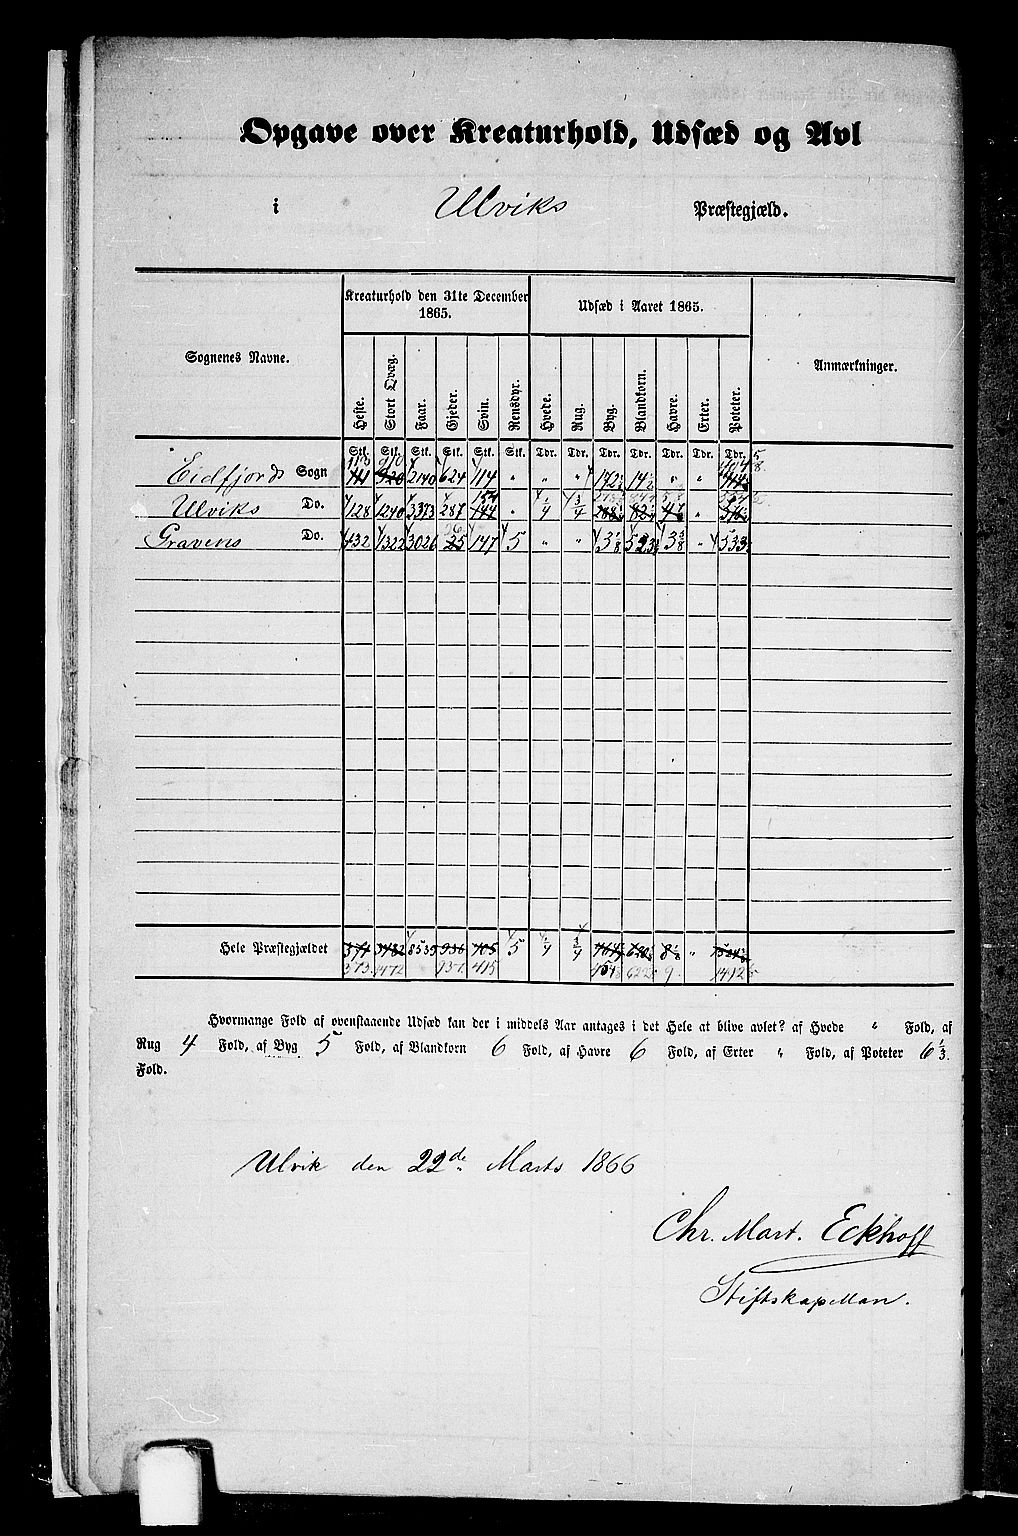 Opgave over Kreaturhold, Udsæd og Avl
i Ulviks Præstegjæld.
Sognenes Navne.
Kreaturhold den 31te December 1865.
Udsæd i Aaret 1865.
Anmærkninger.
Heste. Stort Qvæg. Faar. Gjeder. Svin. Rensdyr. Hvede. Rug. Byg. Blandkorn. Havre. Erter. Poteter.
Stk. Stk. Stk. Stk. Stk. Stk. Tdr. Tdr. Tdr. Tdr. Tdr. Tdr. Tdr.
Eidfjords Sogn 113 910 2140 624 114 " " "
Ulviks Do. 128 1240 3373 287 154 144 " 1/4 3/4
Gravens Do. 132 1322 3026 25 147 5 " " 3 1/8 523 3 3/8 " 533
Hele Præstegjældet 374 3482 8539 936 405 5 1/4 3/4 8 1/2 "
373 415 9
Hvormange Fold af ovenstaaende Udsæd kan der i middels Aar antages i det Hele at blive avlet? af Hvede " Fold, af
Rug 4 Fold, af Byg 5 Fold, af Blandkorn 6 Fold, af Havre 6 Fold, af Erter " Fold, af Poteter 6 1/3
Fold.
Ulvik den 22de Marts 1866
Chr. Mart. Eckhoff
Stiftskapellan.